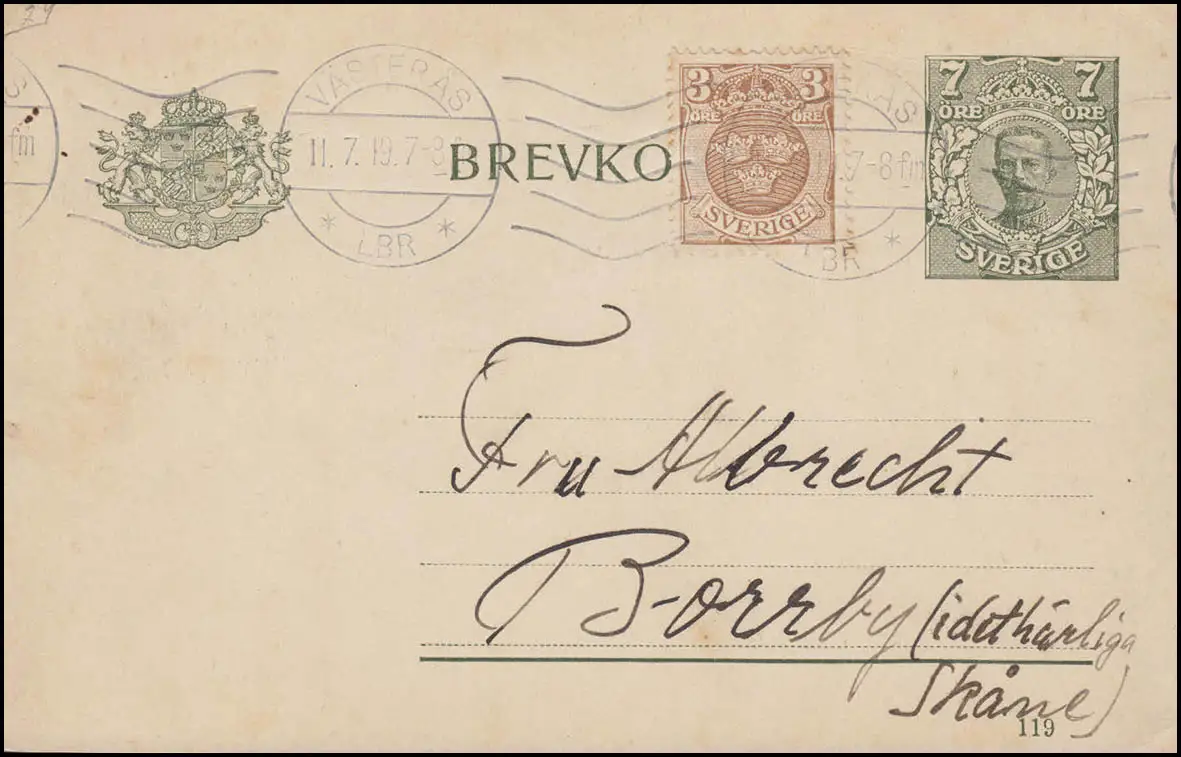 29
VÄSTERÅS
11.7.19.7-8 fm
LBR
BREVKO
3 3
ÖRE ÖRE
SVERIGE
7 7
ÖRE ÖRE
SVERIGE
ERÅS
7-8 fm
BR
S
fm
Fru Albrecht
Borrby (i det härliga
Skåne)
119